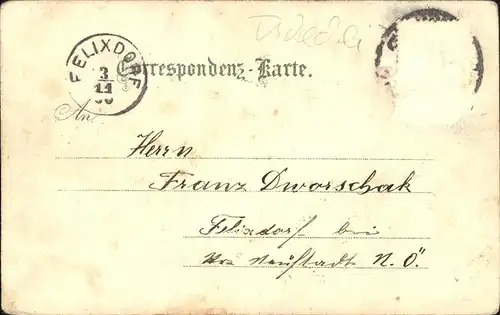 FELIXDORF
3
11
00
Correspondenz-Karte.
An
Herrn
Franz Dworschak
Felixdorf bei
Neustadt N. Ö.